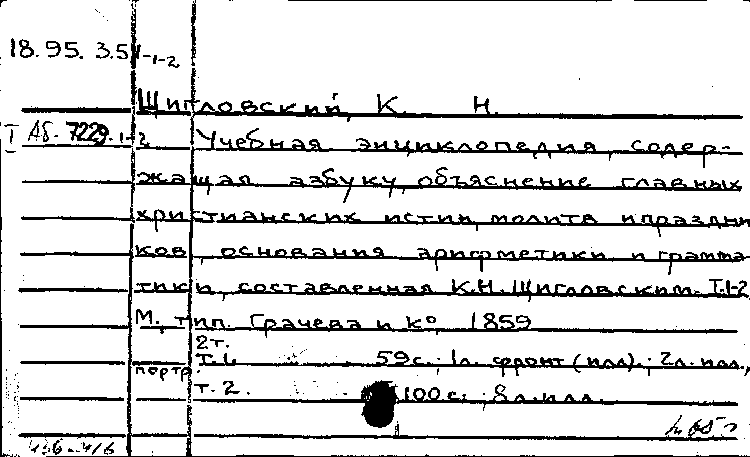 18.95.3.51-1-2
Щигловский, К. Н.
I Аб. 7229.1-2 Учебная энциклопедия, содер-
жащая азбуку, объяснение главных
христианских истин, молитв и праздни
ков, основания арифметики и грамма
тики, составленная К.Н. Щигловским. Т.1-2
М., тип. Грачева и Ко, 1859
2т.
Т.1. 59с.; 1л. фронт (илл).; 2л. илл.,
портр
Т.2. 100с.; 8л. илл.